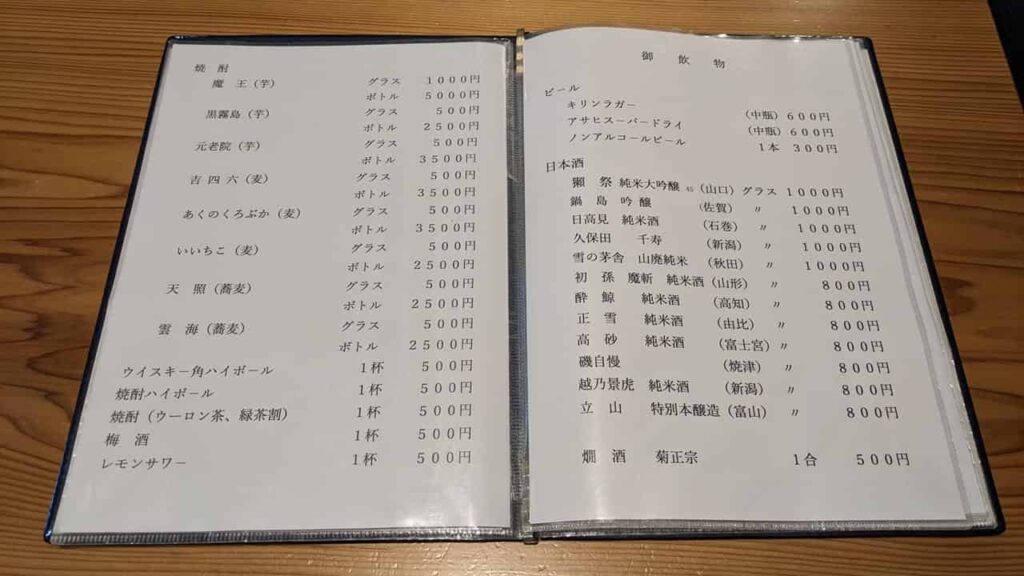 焼 酎
魔 王（芋） グラス 1000円
ボトル 5000円
黒霧島（芋） グラス 500円
ボトル 2500円
元老院（芋） グラス 500円
ボトル 3500円
吉四六（麦） グラス 500円
ボトル 3500円
あくのくろぶか（麦） グラス 500円
ボトル 3500円
いいちこ（麦） グラス 500円
ボトル 2500円
天 照（蕎麦） グラス 500円
ボトル 2500円
雲 海（蕎麦） グラス 500円
ボトル 2500円
ウイスキー角ハイボール 1杯 500円
焼酎ハイボール 1杯 500円
焼酎（ウーロン茶、緑茶割） 1杯 500円
梅 酒 1杯 500円
レモンサワー 1杯 500円
御 飲 物
ビール
キリンラガー （中瓶）600円
アサヒスーパードライ （中瓶）600円
ノンアルコールビール 1本 300円
日本酒
獺 祭 純米大吟醸 45（山口）グラス 1000円
鍋 島 吟 醸 （佐賀） 〃 1000円
日高見 純米酒 （石巻） 〃 1000円
久保田 千寿 （新潟） 〃 1000円
雪の茅舎 山廃純米 （秋田） 〃 1000円
初 孫 魔斬 純米酒（山形） 〃 800円
酔 鯨 純米酒 （高知） 〃 800円
正 雪 純米酒 （由比） 〃 800円
高 砂 純米酒 （富士宮） 〃 800円
磯自慢 （焼津） 〃 800円
越乃景虎 純米酒 （新潟） 〃 800円
立 山 特別本醸造（富山） 〃 800円
燗 酒 菊正宗 1合 500円